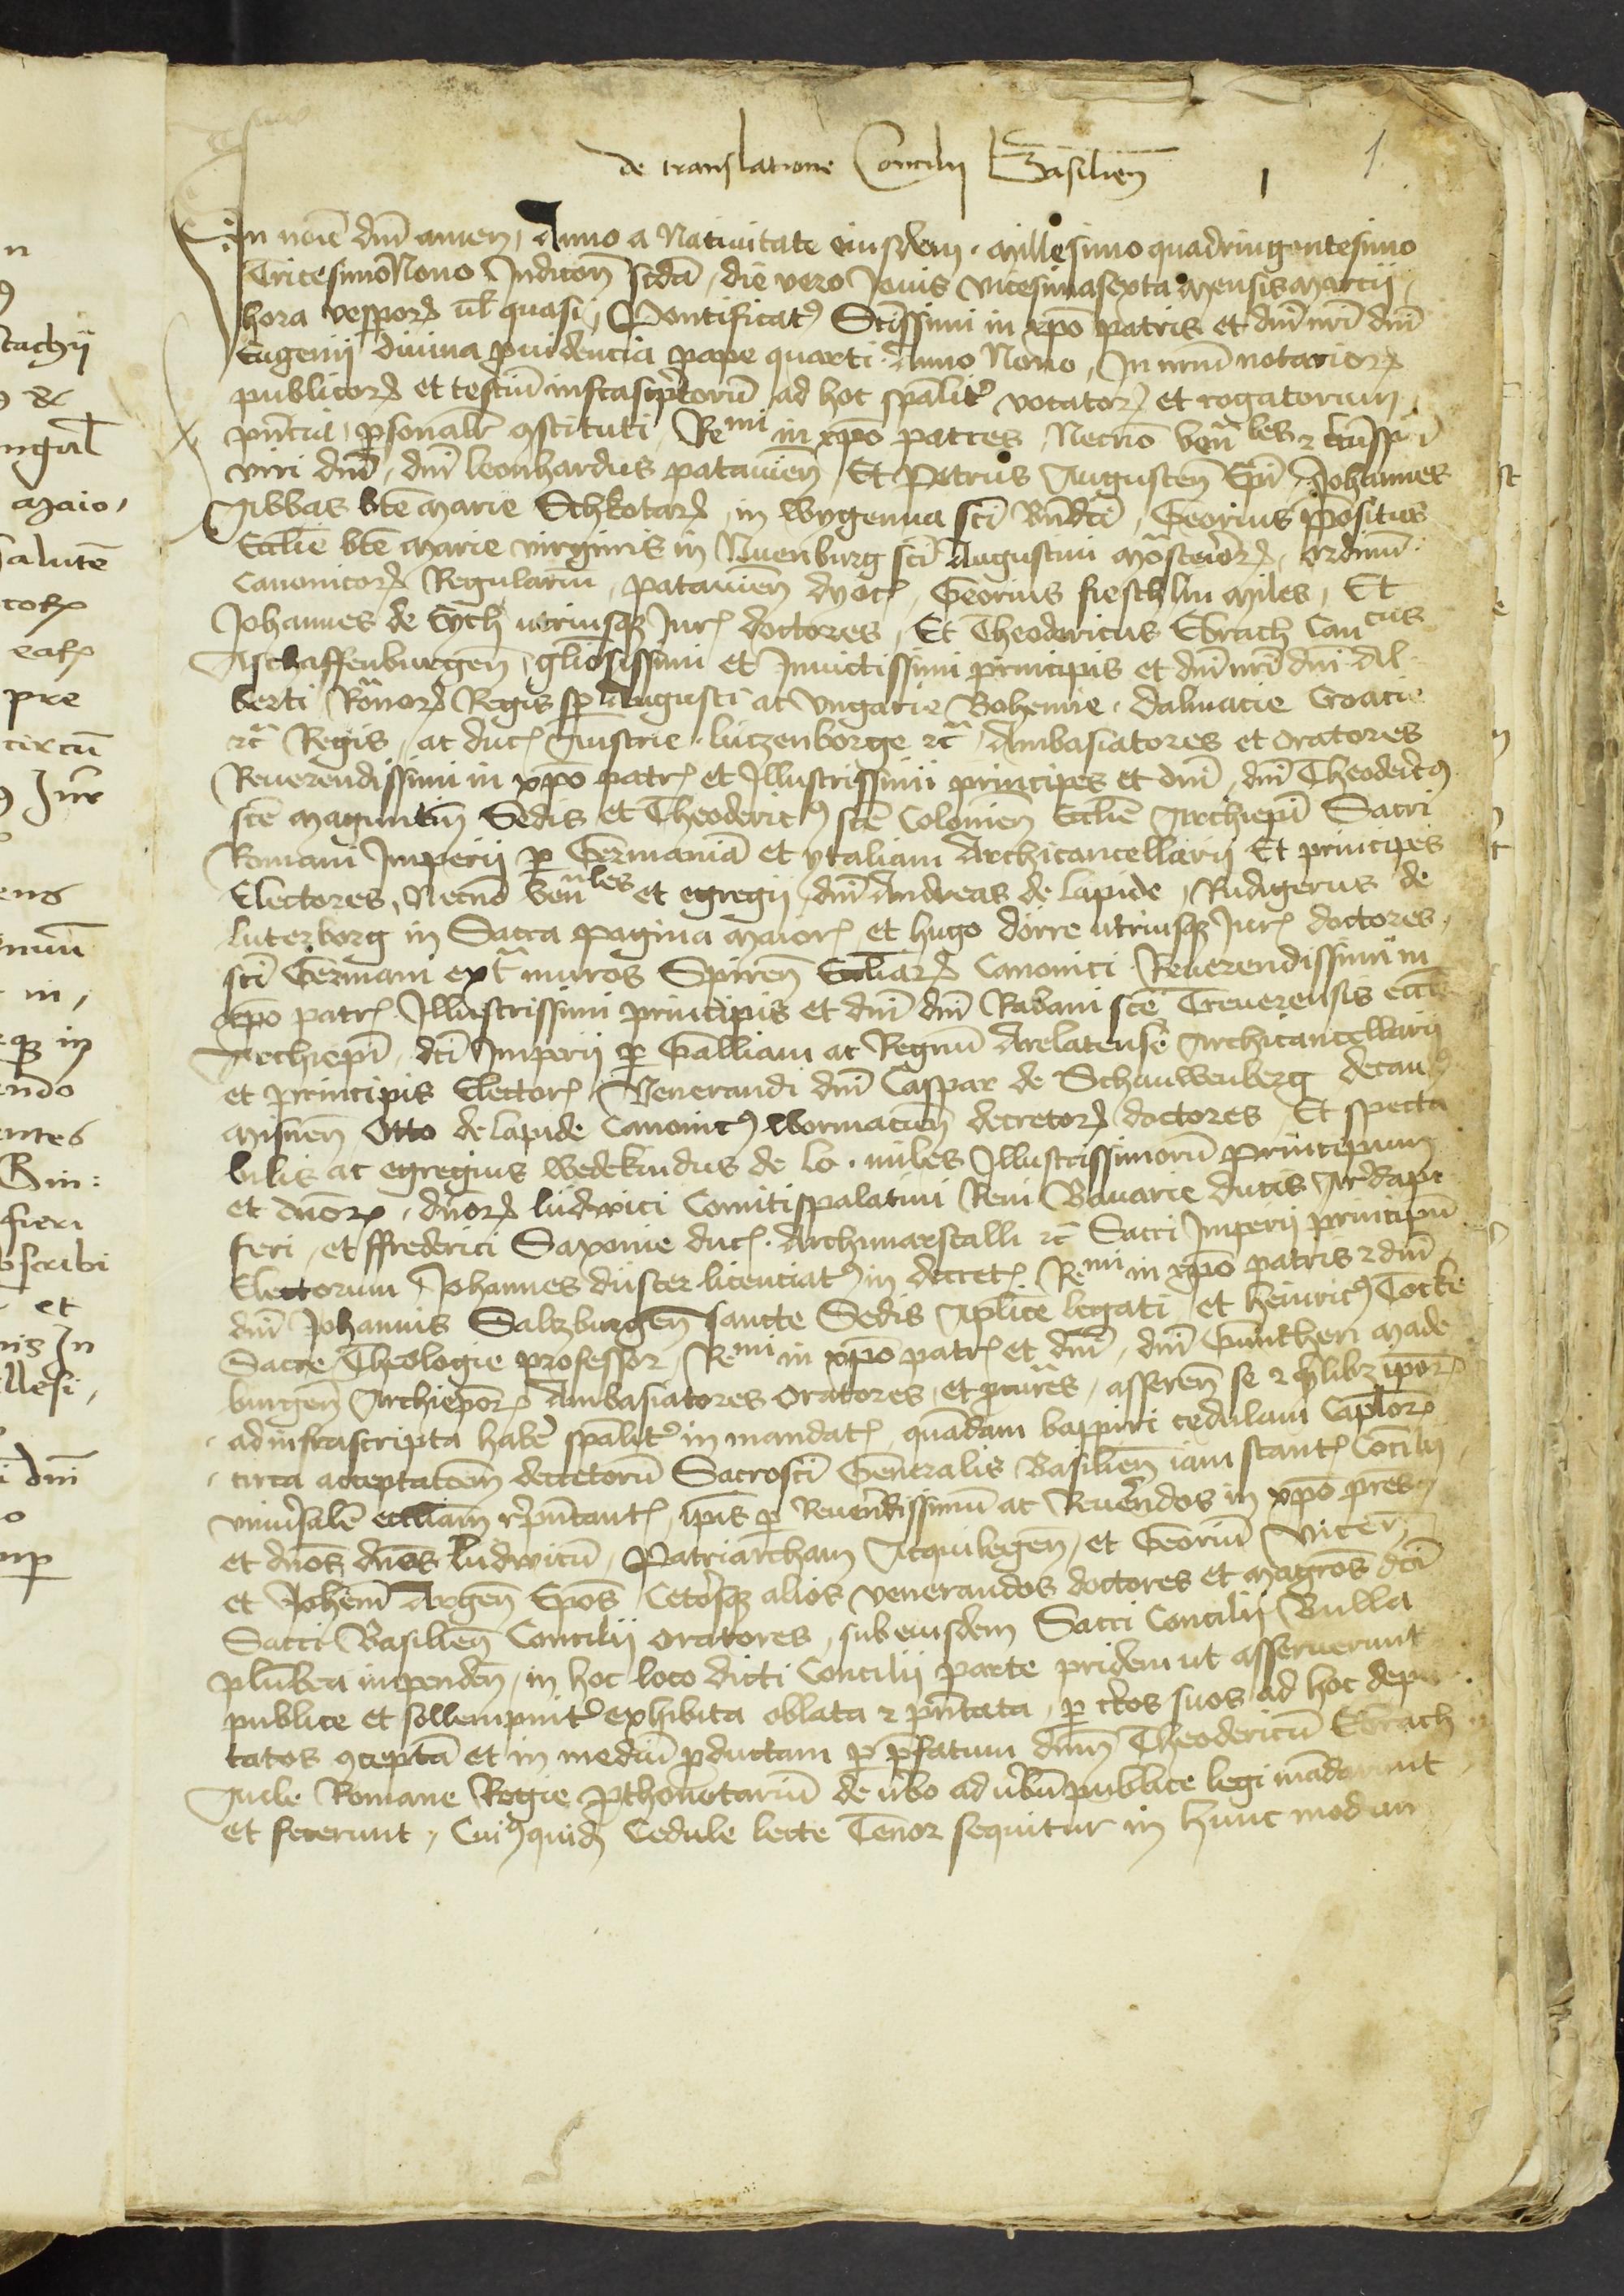 de translatione Concilij Basilien̄
1
1
In noīe dn̄i amen, Anno a Natiuitate eiusdem. Millesimo quadringentesimo
Tricesimo Nono Indicōn scd̄a, die vero Jouis vicesimasexta Mensis Marcij,
hora vesporꝝ ul̄ quasi, Pontificatꝰ Sctīssimi in xp̄o patris et dn̄i nr̄i dn̄i
Eugenij diuina ꝓuidencia pape quarti. Anno Nono, In mr̄m notariorꝝ
publicorꝝ et testiū infrascptorū ad hoc spālitᵉ vocatorꝝ et rogatorum
pn̄tia, ꝑsonalr̄ ꝯstituti, Reᵐⁱ in xp̄o patres, Necnō ven̄ᵇˡᵉˢ ⁊
viri dn̄i, dn̄i leonhardus patauien̄ Et Petrus Augusten̄ Ep̄i, Johannes
Abbas bt̄e Marie Schkotarꝝ in wygenna scī Bn̄dcī, Georius ꝓpositus
Ecclīe bt̄e Marie virginis in Nuenburg scī Augustini mōsterꝝ, ordinū
Canonicorꝝ Regularium, patauien̄ dyoc̄, Georius fieschlin Miles, Et
Johannes de Eych utriusqꝫ Jurꝭ doctores, Et Theodericus Ebrach Canᶜᵘˢ
Aschaffenburgen̄, gl̄iosissimi et Jnuictissimi principis et dn̄i nr̄i dn̄i Al
berti Rōnorꝝ Regis sꝑ Augusti ac vngarie Bohemie. dalmacie Croacie
⁊c̄ Regis, ac ducꝭ Austrie. lutzenborge ⁊c̄ Ambasiatores et oratores
Reuerendissimi in xp̄o patrꝭ et Jllustrissimi principes et dn̄i, dn̄i Theodericꝰ
scē Magunten̄ Sedis et Theodericꝰ scē Colonien̄ Ecclīe Archiep̄i Sacri
Romani Imperij ꝑ Germaniā et ytaliam Archicancellarij Et principes
Electores, Necnō ven̄ˡᵉˢ et egregij dn̄i Andreas de lapide, Rudigerus de
luterborg in Sacra pagina maiorꝭ et hugo dorre utriusqꝫ Jurꝭ doctores,
scī Germani ext̄ muros Spiren̄ Ecclīarꝝ Canonici Reuerendissimi in
xp̄o patrꝭ Jllustrissimi principis et dn̄i dn̄i Rabani scē Treuerensis eccl̄
Archiep̄i, dcī Imperij ꝑ Galliam ac Regnū Arelatense Archicancellarij
et principis Electorꝭ, Venerandi dn̄i Caspar de Schauwenberg decanꝰ
Misnen̄ Otto de lapide Canonicꝰ wormacien̄ decretorꝝ doctores, Et specta
bilis ac egregius wedekindus de lo. miles Jllustrissimorū principum
et dn̄orꝝ, dn̄orꝝ ludwici Comitispalatini Reni Bauarie ducis Archdapi
feri, et ffrederici Saxonie ducꝭ. Archimarscalli ⁊c̄ Sacri Imperij principū
Electorum Johannes duster licenciatꝰ in decretꝭ Reᵐⁱ in xp̄o patris ⁊ dn̄i
dn̄i Johannis Saltzburgen̄ sancte Sedis Aplīce legati, et heinricꝰ Tocke
Sacre Theologie professor Reᵐⁱ in xp̄o patrꝭ et dn̄i, dn̄i Guntheri Made
burgen̄ Archiepōrꝝ Ambasiatores oratores, et ꝓcur̄es, asseren̄ se ⁊ qlibꝫ ip̄orꝝ
ad infrascripta habē spālitᵉ in mandatꝭ, quādam bappiri cedulam Capl̄orꝝ
circa acceptatōem decretorū Sacroscī Generalis Basilien̄ iam stantꝭ Concilij
vniūsalē eccliām rp̄n̄tantꝭ, ip̄is ꝑ Reuerēdissimū ac Reuerēdos in xp̄o pres
et dn̄os dn̄os ludwicū, Patriarcham Aquilegen̄, et Georiū Vicen̄
et Johēm Argen̄ Ep̄os, Ceterosqꝫ alios venerandos doctores et magr̄os dcī
Sacri Basilien̄ Concilij oratores, sub eiusdem Sacri Concilij Bulla
plūbea inpenden̄, in hoc loco dicti Concilij parte pridem ut asseruerunt
publice et sollempnitᵉ exhibita oblata ⁊ pn̄tata, ꝑ ctos suos ad hoc depu
tatos ꝯceptā et in mediū ꝓductam ꝑ pfatum dn̄m Theodericū Ebrach
Aule Romane Regie ꝓthonotariū de ūbo ad ūbū publice legi mādarunt
et fecerunt, Cuiꝰquidē Cedule lecte Tenor sequitur in hunc modum